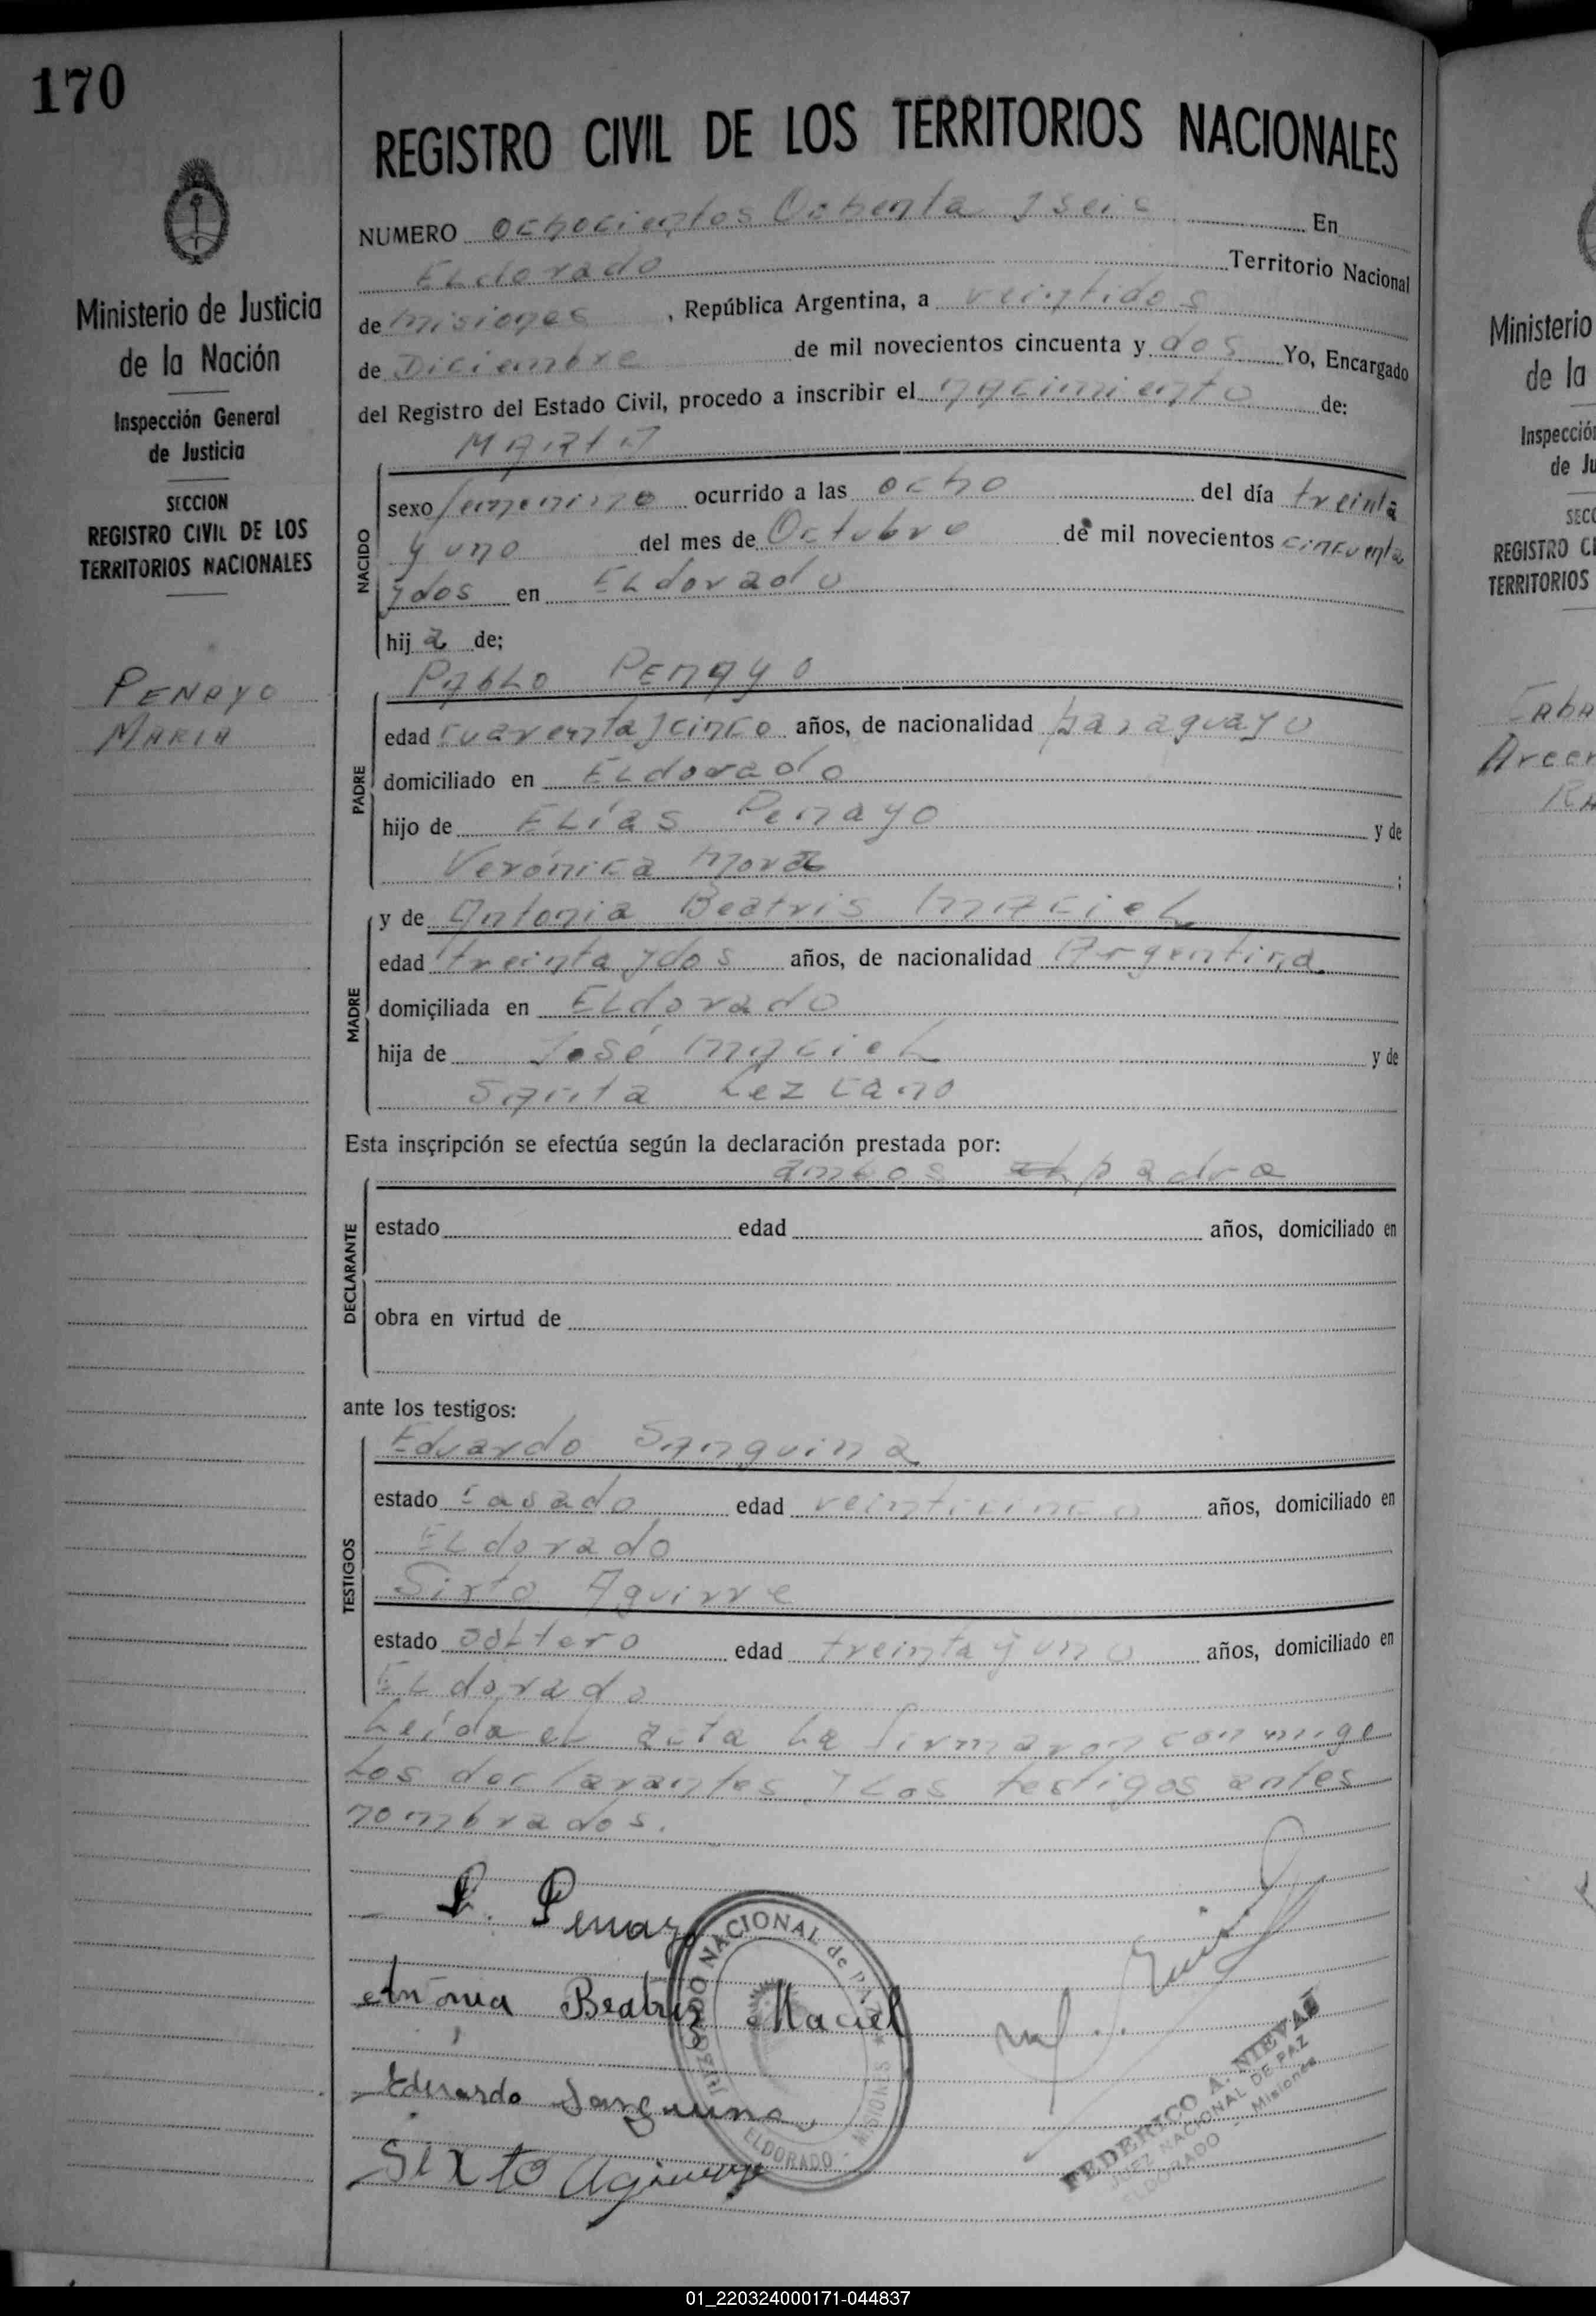 170
REGISTRO CIVIL DE LOS TERRITORIOS NACIONALES
Ministerio de Justicia
de la Nación
Inspección General
de Justicia
SECCION
REGISTRO CIVIL DE LOS
TERRITORIOS NACIONALES
PENAYO
MARIA
NUMERO ochocientos Ochenta y seis En
ELdorado Territorio Nacional
de misiones , República Argentina, a veintidos
de Diciembre de mil novecientos cincuenta y dos Yo, Encargado
del Registro del Estado Civil, procedo a inscribir el nacimiento de:
MARIA
NACIDO
sexo femenino ocurrido a las ocho del día treinta
y uno del mes de Octubre de mil novecientos cincuenta
y dos en ELdorado
hij a de:
PADRE
PabLo Penayo
edad cuarenta y cinco años, de nacionalidad paraguayo
domiciliado en ELdorado
hijo de ELías Penayo y de
Verónica mora ;
MADRE
y de Antonia Beatris maciel
edad treinta y dos años, de nacionalidad Argentina
domiciliada en ELdorado
hija de José maciel y de
Santa Lezcano
Esta inscripción se efectúa según la declaración prestada por:
DECLARANTE
ambos padre
estado edad años, domiciliado en
obra en virtud de
ante los testigos:
TESTIGOS
Eduardo Sanguina
estado casado edad veinticinco años, domiciliado en
ELdorado
Sixto Aguirre
estado soltero edad treinta y uno años, domiciliado en
ELdorado
Leida el acta la firmaron conmigo
los declarantes y los testigos antes
nombrados.
P. Penayo
Antonia Beatriz Maciel
Eduardo Sanguina
Sixto Aguirre
JUZGADO NACIONAL de PAZ
ELDORADO - MISIONES
FEDERICO A. NIEVAS
JUEZ NACIONAL DE PAZ
ELDORADO - Misiones
Ministerio
de la
Inspección
de Ju
SECC
REGISTRO CI
TERRITORIOS
01_220324000171-044837